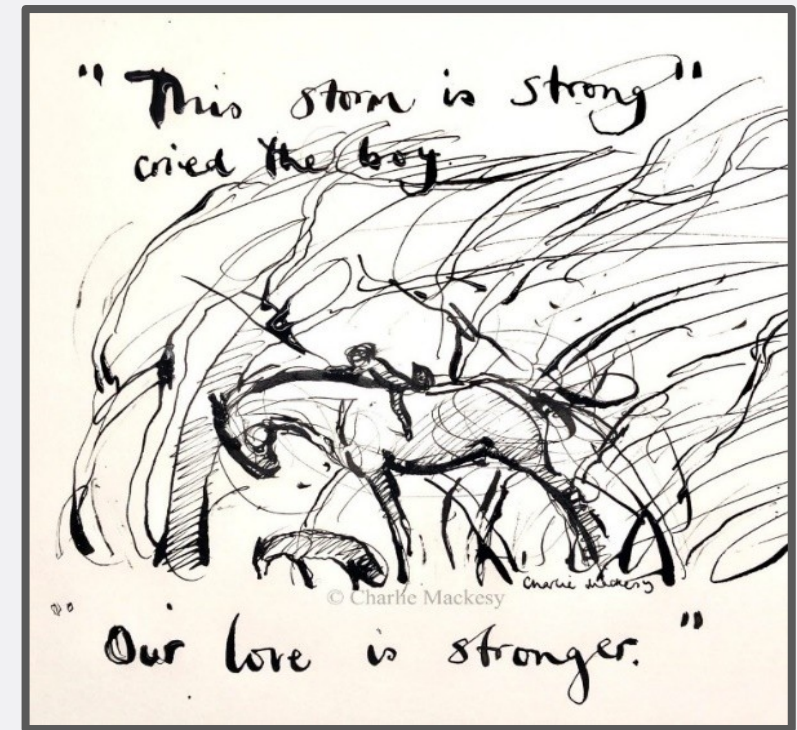 "This storm is strong"
cried the boy.
Charlie Mackesy
© Charlie Mackesy
"Our love is stronger."